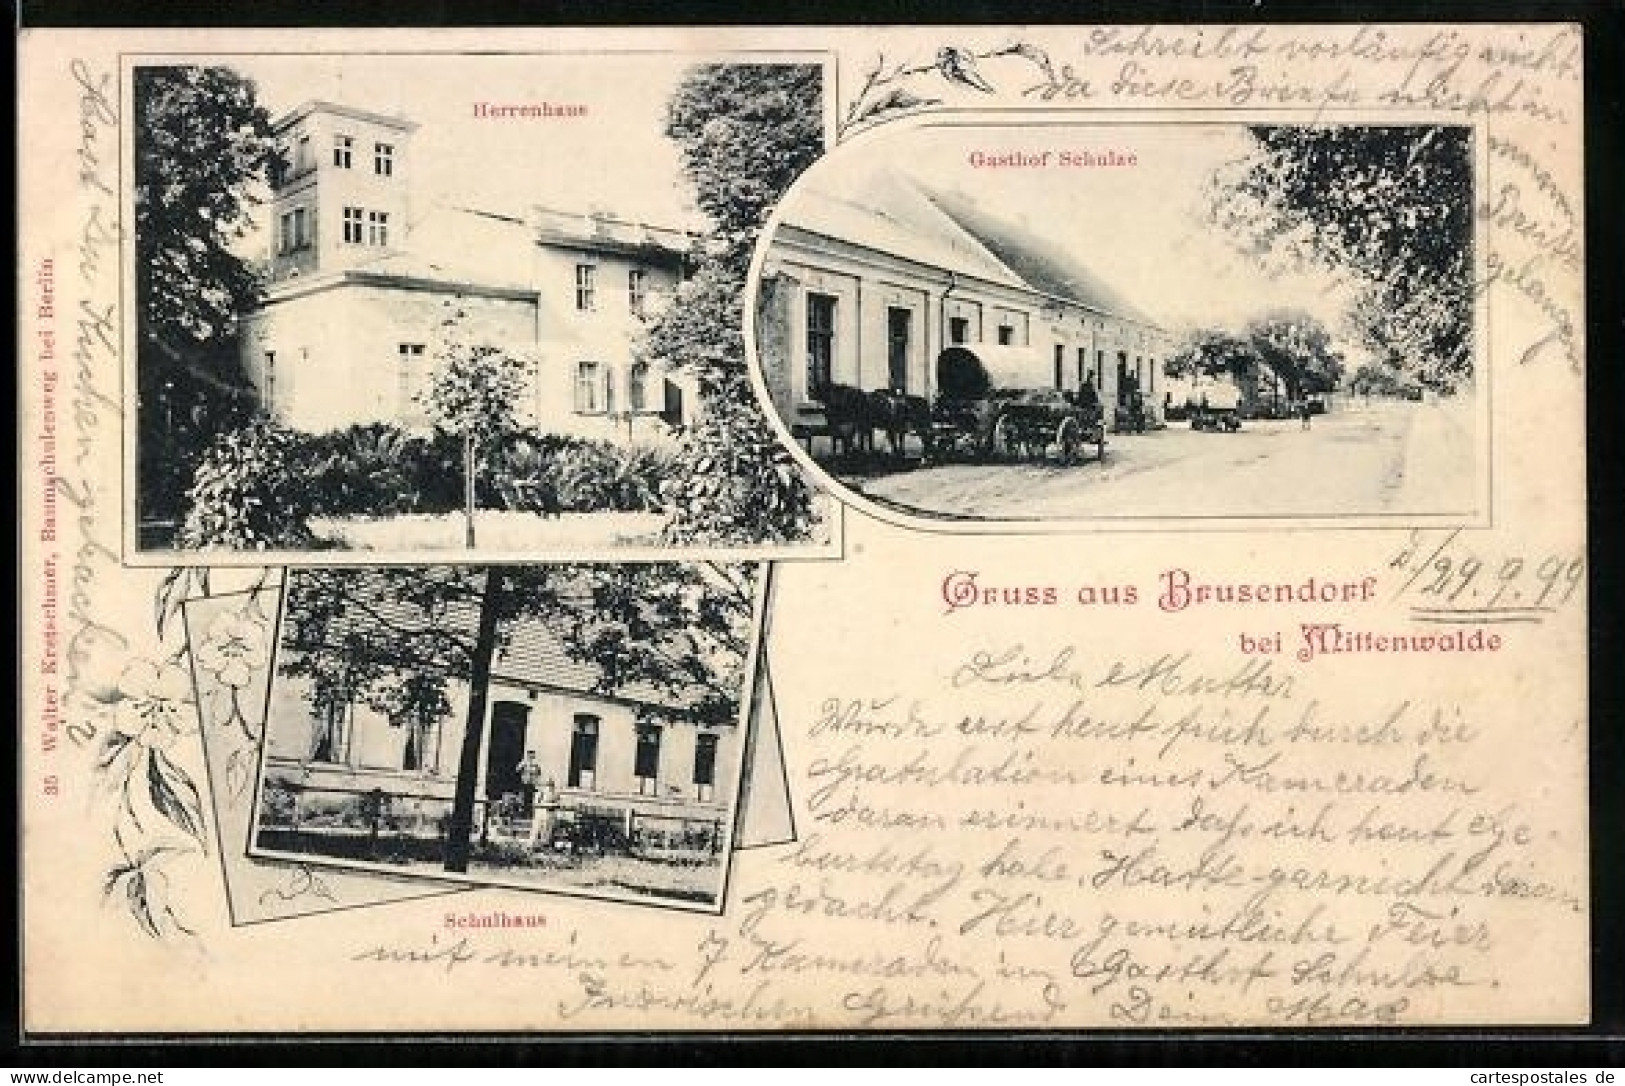 Schreibt vorläufig nicht.
da diese Briefe nicht in
meinen
Besitz
gelangen
Herrenhaus
Gasthof Schulze
Hast Du Kuchen gebacken?
35 Walter Kretschmer, Baumschulenweg bei Berlin
Gruss aus Brusendorf
bei Mittenwalde
d/29.9.99
Liebe Mutter
Wurde erst heut früh durch die
Gratulation eines Kameraden
daran erinnert, daß ich heut Ge-
burtstag habe. Hatte garnicht daran
gedacht. Hier gemütliche Feier
mit meinen 7 Kameraden im Gasthof Schulze.
Inzwischen Grüßend Dein Max
Schulhaus
your image archive
cartespostales de